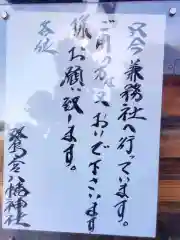 只今兼務社へ行っています。
ご用の方は又おいで下さいます
様お願い致します。
各位
鷺宮八幡神社